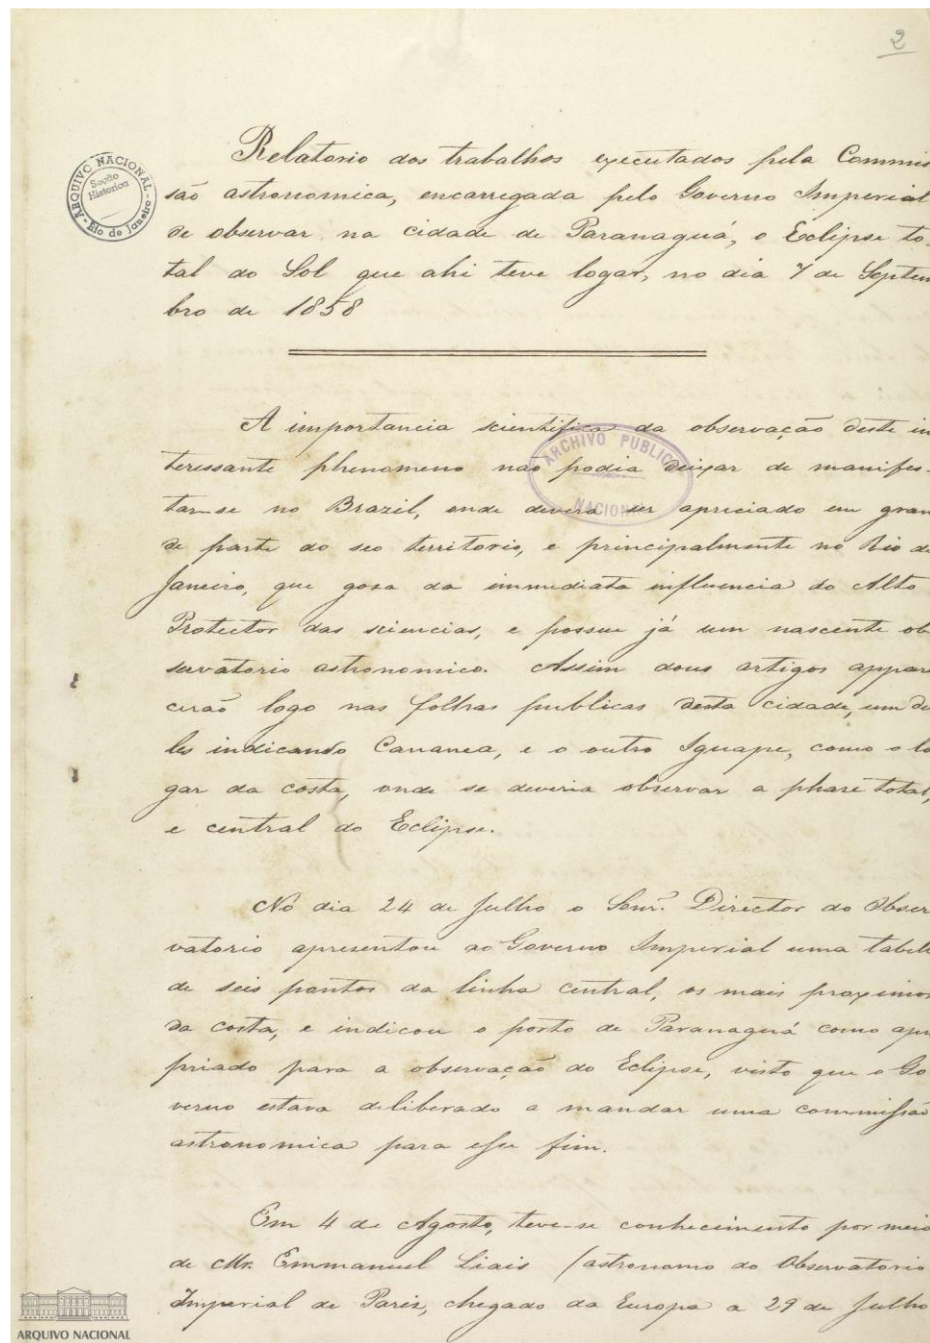 2
Relatorio dos trabalhos executados pela Commis
são astronomica, encarregada pelo Governo Imperial
de observar na cidade de Paranaguá, o Eclipse to-
tal do Sol que ahi teve logar, no dia 7 de Septem
bro de 1858
ARQUIVO NACIONAL
Secção
Historica
Rio de Janeiro
A importancia scientifica da observação deste in
teressante phenomeno não podia deixar de manifes-
tar-se no Brazil, onde deverá ser apreciado em gran
de parte do seo territorio, e principalmente no Rio de
Janeiro, que gosa da immediata influencia do Alto
Protector das sciencias, e possue já um nascente ob
servatorio astronomico. Assim dous artigos appare
cerão logo nas folhas publicas desta cidade, um de
les indicando Cananea, e o outro Iguape, como o lo
gar da costa, onde se deveria observar a phase total,
e central do Eclipse.
ARCHIVO PUBLICO
NACIONAL
No dia 24 de Julho o Senr. Director do Obser
vatorio apresentou ao Governo Imperial uma tabell
de seis pontos da linha central, os mais proximos
da costa, e indicou o porto de Paranaguá como apro
priado para a observação do Eclipse, visto que o Go
verno estava deliberado a mandar uma commissão
astronomica para esse fim.
Em 4 de Agosto, teve-se conhecimento por meio
de Mr. Emmanuel Liais (astronomo do Observatorio
Imperial de Paris, chegado da Europa a 29 de Julho
ARQUIVO NACIONAL